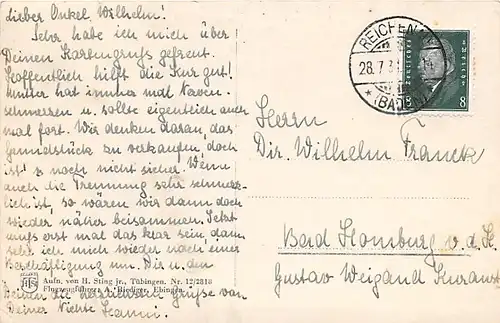 lieber Onkel Wilhelm!
Sehr habe ich mich über
Deinen Kartengruß gefreut.
Hoffentlich hilft die Kur gut!
hat immer mal Nerven-
schmerzen u. sollte eigentlich auch
mal fort. Wir denken daran, das
Grundstück zu verkaufen doch
ist's noch nicht sicher. Wenn
auch die Trennung sehr schmerz-
lich ist, so wären wir dann doch
wieder näher beisammen. Jetzt
muß erst mal das klar sein, dann
seh ich mich wieder nach einer
Beschäftigung um. Dir u. den
Aufn. von H. Sting jr., Tübingen. Nr. 12/2818
Flugzeugführer A. Biediger, Ebingen.
Beiden die herzlichsten Grüße von
Deiner Nichte
REICHENAU
28.7.31
(BADEN)
Deutsches Reich
8
Herrn
Dir. Wilhelm Franck
Bad Homburg v. d. H.
Gustav Weigand Kuranst.